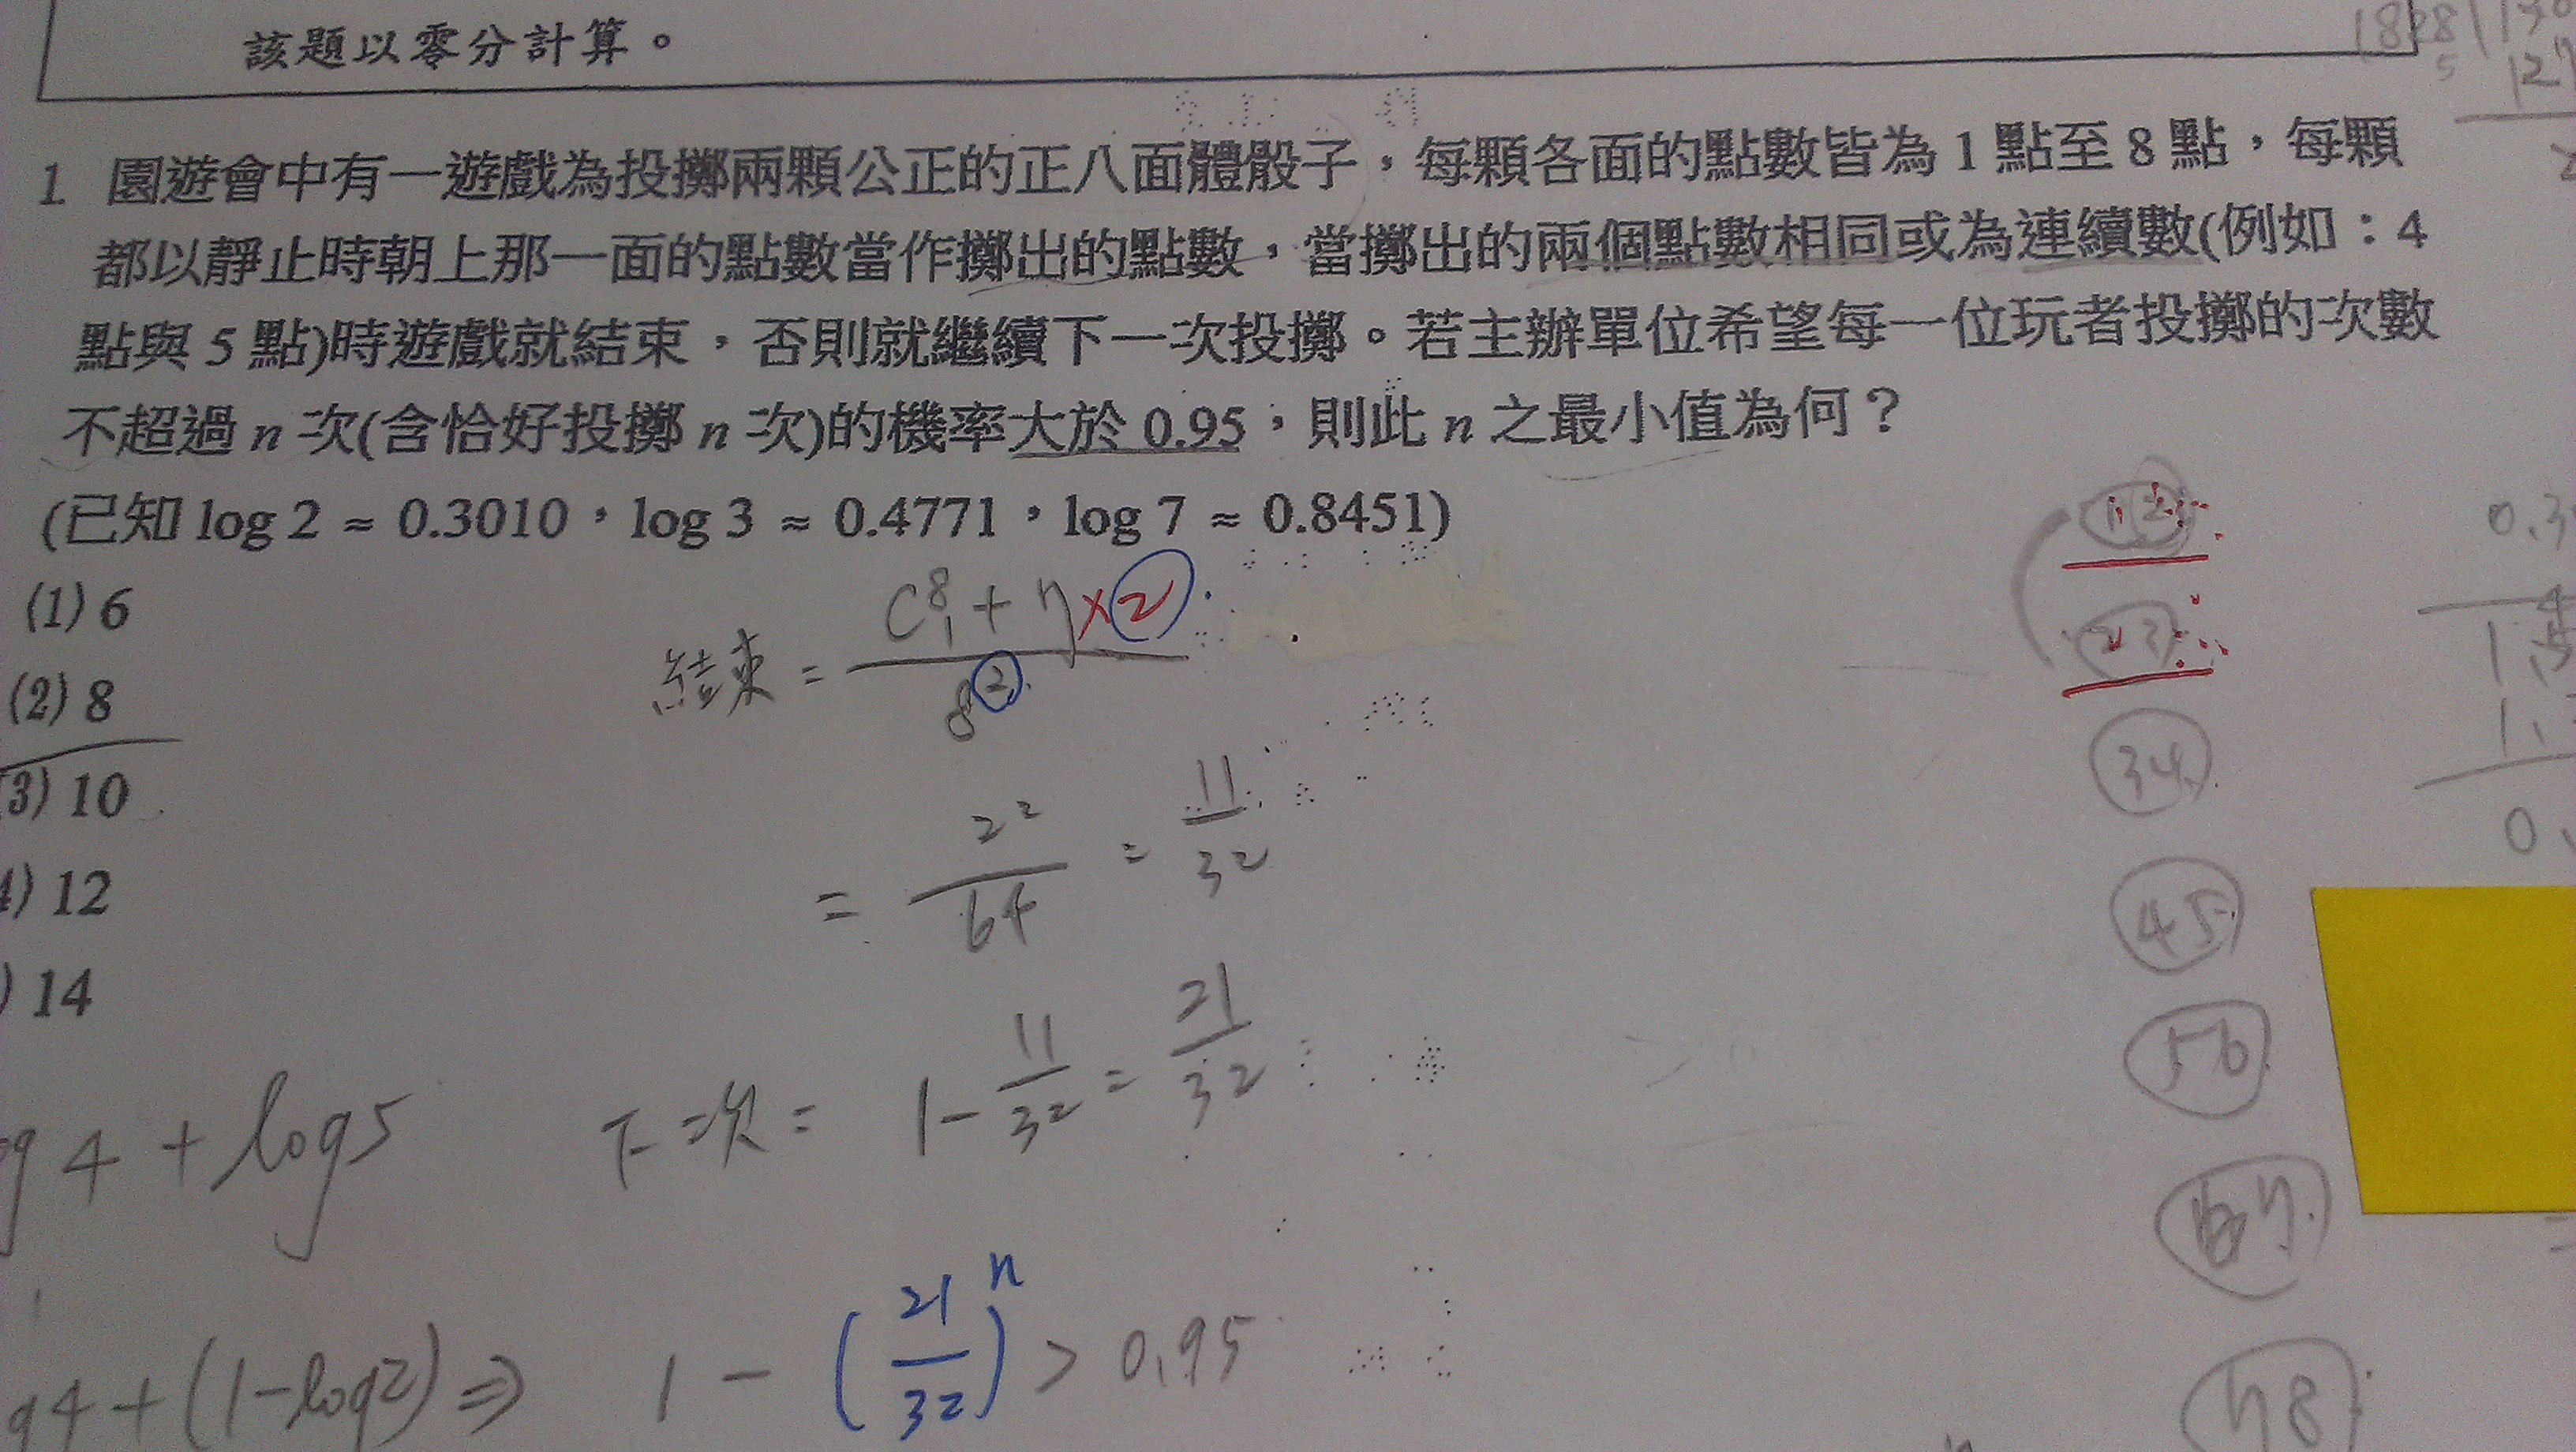 該題以零分計算。
1. 園遊會中有一遊戲為投擲兩顆公正的正八面體骰子，每顆各面的點數皆為 1 點至 8 點，每顆
都以靜止時朝上那一面的點數當作擲出的點數，當擲出的兩個點數相同或為連續數(例如：4
點與 5 點)時遊戲就結束，否則就繼續下一次投擲。若主辦單位希望每一位玩者投擲的次數
不超過 n 次(含恰好投擲 n 次)的機率大於 0.95，則此 n 之最小值為何？
(已知 log 2 ≈ 0.3010，log 3 ≈ 0.4771，log 7 ≈ 0.8451)
(1) 6
(2) 8
(3) 10
4) 12
) 14
結束 = (C⁸₁ + 7×2) / 8²
= 22/64 = 11/32
下一次 = 1 - 11/32 = 21/32
g 4 + log5
g4 + (1-log2) ⇒ 1 - (21/32)ⁿ > 0.95
12
23
34
45
56
67
78